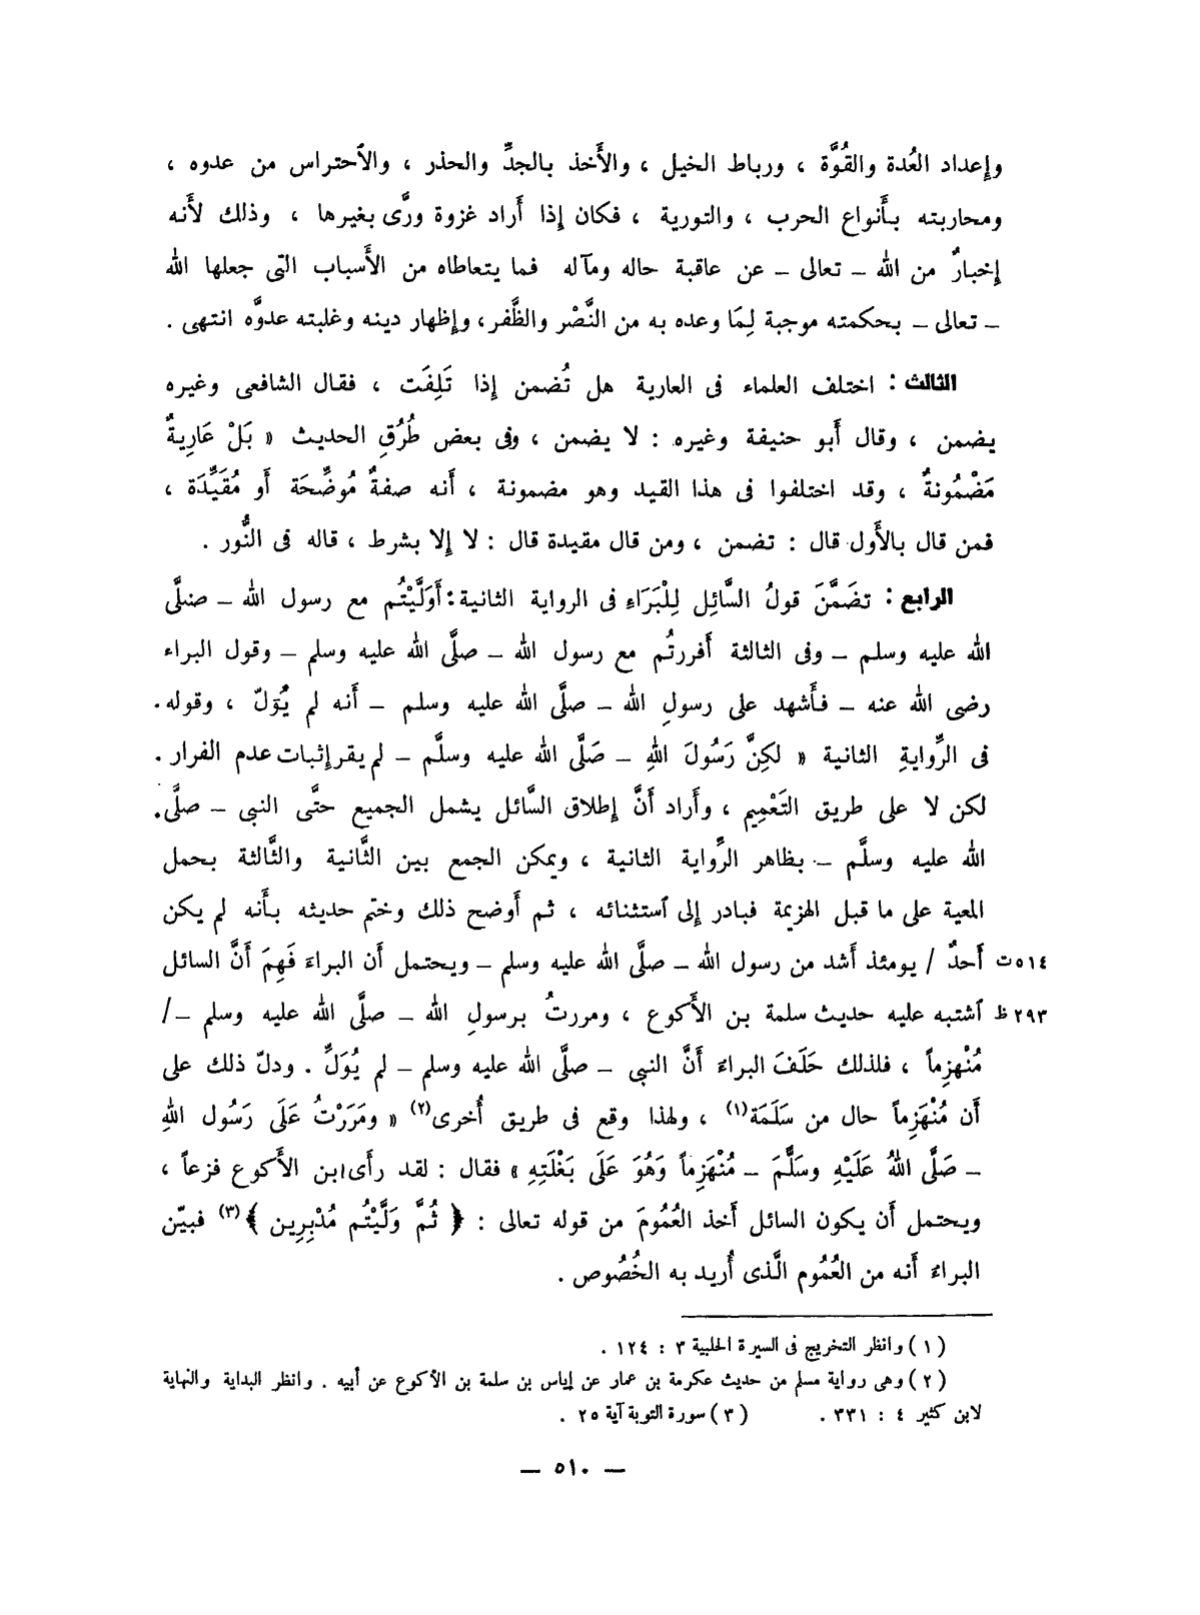 وإعداد العُدة والقُوَّة ، ورباط الخيل ، والأَخذ بالجدِّ والحذر ، والاَحتراس من عدوه ،
ومحاربته بأَنواع الحرب ، والتورية ، فكان إِذا أَراد غزوة ورَّى بغيرها ، وذلك لأَنه
إخبارٌ من الله ــ تعالى ــ عن عاقبة حاله ومآله فما يتعاطاه من الأَسباب التى جعلها الله
ــ تعالى ــ بحكمته موجبة لِمَا وعده به من النَّصْر والظَّفر، وإظهار دينه وغلبته عدوَّه انتهى .
الثالث : اختلف العلماء فى العارية هل تُضمن إِذا تَلِفَت ، فقال الشافعى وغيره
يضمن ، وقال أَبو حنيفة وغيره : لا يضمن ، وفى بعض طُرُقِ الحديث « بَلْ عَارِيةٌ
مَضْمُونةٌ ، وقد اختلفوا فى هذا القيد وهو مضمونة ، أَنه صفةٌ مُوضِّحَة أَو مُقَيِّدَة ،
فمن قال بالأَول قال : تضمن ، ومن قال مقيدة قال : لا إلا بشرط ، قاله فى النُّور .
الرابع : تضَمَّنَ قولُ السَّائِل لِلْبَرَاءِ فى الرواية الثانية : أَوَلَّيْتُم مع رسول الله ــ صلَّى
الله عليه وسلم ــ وفى الثالثة أَفررتُم مع رسول الله ــ صلَّى الله عليه وسلم ــ وقول البراء
رضى الله عنه ــ فأَشهد على رسولِ الله ــ صلَّى الله عليه وسلم ــ أَنه لم يُوَلّ ، وقوله.
فى الرِّوايةِ الثانية « لكِنَّ رَسُولَ اللهِ ــ صَلَّى الله عليه وسلَّم ــ لم يفر إثبات عدم الفرار .
لكن لا على طريق التَعْمِيم ، وأَراد أَنَّ إطلاق السَّائل يشمل الجميع حتَّى النبى ــ صلَّى.
الله عليه وسلَّم ــ بظاهر الرِّواية الثانية ، ويمكن الجمع بين الثَّانية والثَّالثة بحمل
المعية على ما قبل الهزيمة فبادر إلى اَستثنائه ، ثم أَوضح ذلك وختم حديثه بأَنه لم يكن
٥١٤ت أَحدٌ / يومئذ أَشد من رسول الله ــ صلَّى الله عليه وسلم ــ ويحتمل أَن البراءَ فَهِمَ أَنَّ السائل
٢٩٣ ظ اَشتبه عليه حديث سلمة بن الأَكوع ، ومررتُ برسولِ الله ــ صلَّى الله عليه وسلم ــ/
مُنْهزِماً ، فلذلك حَلَفَ البراءَ أَنَّ النبى ــ صلَّى الله عليه وسلم ــ لم يُوَلِّ . ودلّ ذلك على
أَن مُنْهَزِماً حال من سَلَمَة(١) ، ولهذا وقع فى طريق أُخرى(٢) « ومَرَرْتُ عَلَى رَسُول اللهِ
ــ صَلَّى اللهُ عَلَيْهِ وسَلَّمَ ــ مُنْهَزِماً وَهُوَ عَلَى بَغْلَتِهِ » فقال : لقد رأَى ابن الأَكوع فزعاً ،
ويحتمل أَن يكون السائل أَخذ العُمُومَ من قوله تعالى : ﴿ ثُمَّ وَلَّيْتُم مُدْبِرِين ﴾(٣) فبيّن
البراءَ أَنه من العُمُوم الَّذى أُريد به الخُصُوص .
( ١ ) وانظر التخريج فى السيرة الحلبية ٣ : ١٢٤ .
( ٢ ) وهى رواية مسلم من حديث عكرمة بن عمار عن إياس بن سلمة بن الأكوع عن أبيه . وانظر البداية والنهاية
لابن كثير ٤ : ٣٣١ . ( ٣ ) سورة التوبة آية ٢٥ .
ــ ٥١٠ ــ